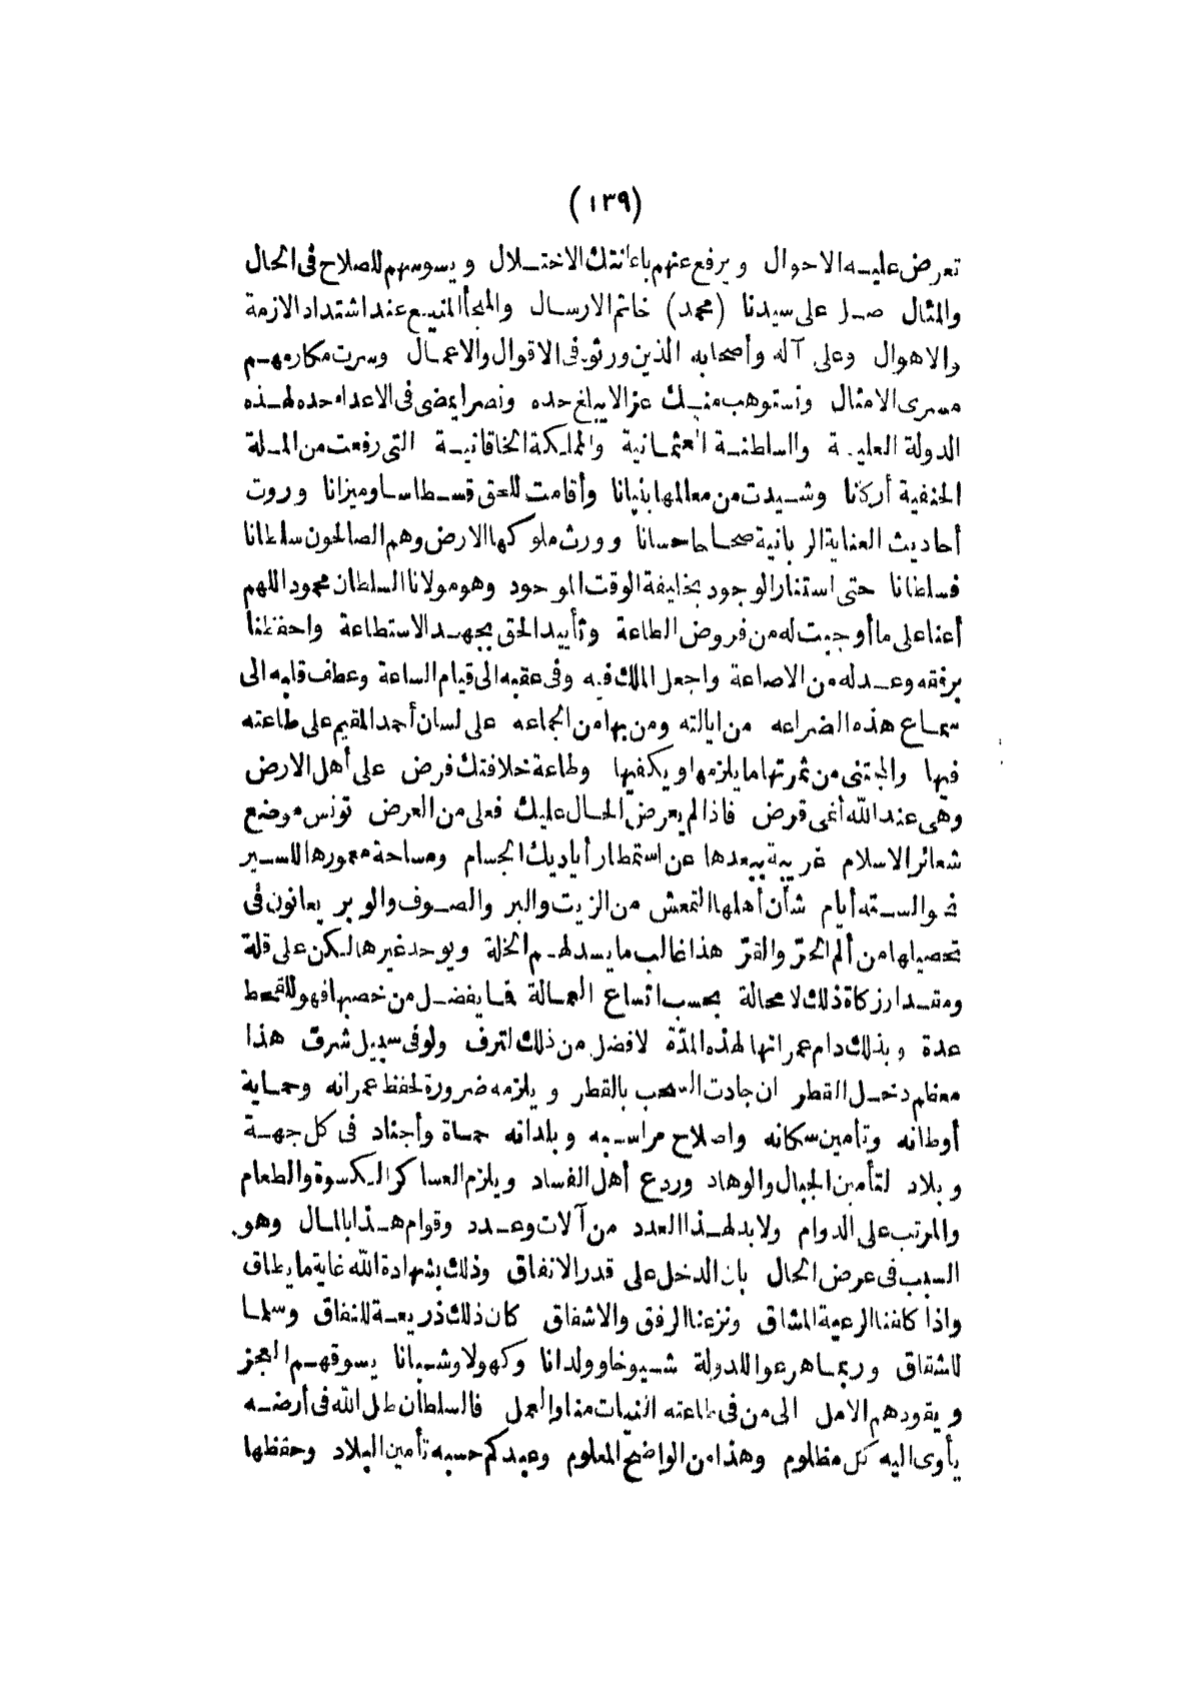 (١٣٩)
تعرض عليه الاحوال ويرفع عنهم باعانتك الاختلال ويسوسهم للصلاح فى الحال
والمثال صل على سيدنا (محمد) خاتم الارسال والملجأ المنيع عند اشتداد الازمة
والاهوال وعلى آله وأصحابه الذين ورثوه فى الاقوال والاعمال وسرت مكارمهم
مسرى الامثال ونستوهب منك عزا لا يبلغ حده ونصرا يمضى فى الاعداء حده لهذه
الدولة العلية والسلطنة العثمانية والمملكة الخاقانية التى رفعت من الملة
الحنفية أركانا وشيدت من معالمها بنيانا وأقامت للحق قسطاسا وميزانا وروت
أحاديث العناية الربانية صحاحا حسانا وورث ملوكها الارض وهم الصالحون سلطانا
فسلطانا حتى استنار الوجود بخليفة الوقت الموجود وهو مولانا السلطان محمود اللهم
أعنا على ما أوجبت له من فروض الطاعة وتأييد الحق بجهد الاستطاعة واحفظنا
برفقه وعدله من الاضاعة واجعل الملك فيه وفى عقبه الى قيام الساعة وعطف قلبه الى
سماع هذه الضراعه من ايالته ومن بها من الجماعه على لسان أحمد المقيم على طاعته
فيها والمجتنى من ثمرتها ما يلزمها ويكفيها وطاعة خلافتك فرض على أهل الارض
وهى عند الله أغى قرض فاذا لم يعرض الحال عليك فعلى من العرض تونس موضع
شعائر الاسلام غريبة ببعدها عن استمطار أياديك الجسام ومساحة معمورها للسير
نحو الستة أيام شأن أهلها التمعش من الزيت والبر والصوف والوبر يعانون فى
تحصيلها من ألم الحرّ والقرّ هذا غالب ما يسد لهم الخلة ويوجد غيرها لكن على قلة
ومقدار زكاة ذلك لا محالة بحسب اتساع العمالة فما يفضل من خصبها فهو للقحط
عدة وبذلك دام عمرانها لهذه المدّة لا فضل من ذلك لترف ولو فى سبيل شرف هذا
معظم دخل القطر ان جادت السحب بالقطر ويلزمه ضرورة لحفظ عمرانه وحماية
أوطانه وتأمين سكانه واصلاح مراسيه وبلدانه حماة وأجناد فى كل جهة
وبلاد لتأمين الجبال والوهاد وردع أهل الفساد ويلزم العساكر الكسوة والطعام
والمرتب على الدوام ولا بد لهذا العدد من آلات وعدد وقوام هذا بالمال وهو
السبب فى عرض الحال بان الدخل على قدر الانفاق وذلك بشهادة الله غاية ما يطاق
واذا كلفنا الرعية المشاق ونزعنا الرفق والاشفاق كان ذلك ذريعة للنفاق وسلما
للشقاق وربما هرعوا للدولة شيوخا وولدانا وكهولا وشبانا يسوقهم العجز
ويقودهم الامل الى من فى طاعته النيات منا والعمل فالسلطان ظل الله فى أرضه
يأوى اليه كل مظلوم وهذا من الواضح المعلوم وعبدكم حسبه تأمين البلاد وحفظها